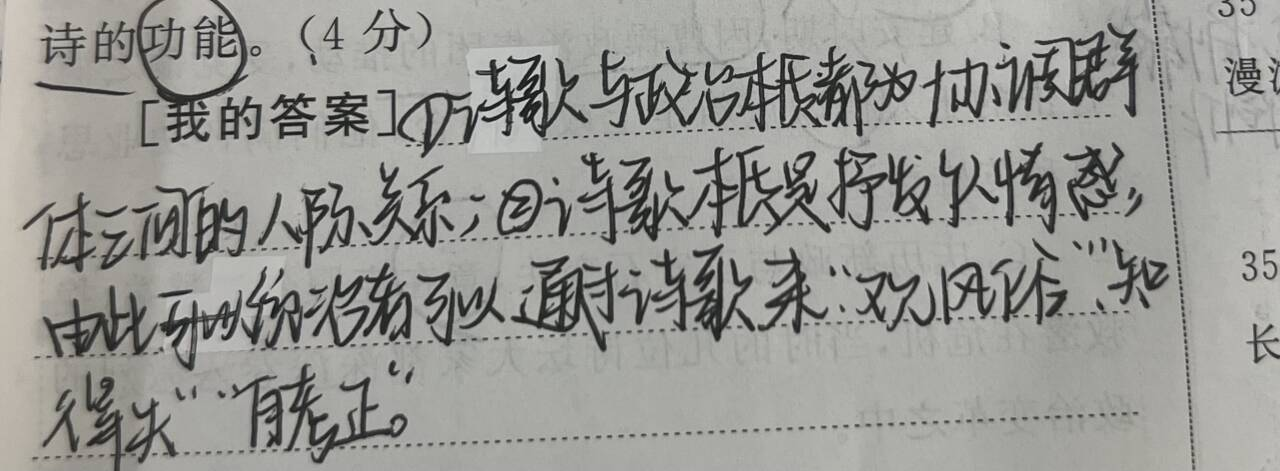 诗的功能。（4 分）
[我的答案]①诗歌与政治本质都为协调群
体之间的人际关系；②诗歌本质是抒发人情感，
由此可以统治者可以通过诗歌来“观风俗”“知
得失”“自考正。”
35
漫
35
长